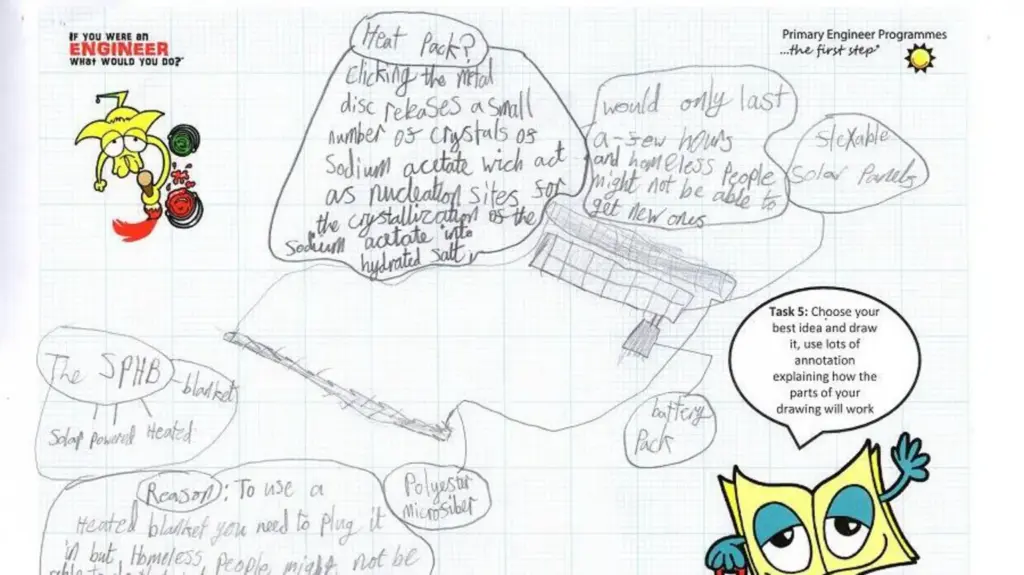 IF YOU WERE an
ENGINEER
WHAT WOULD YOU DO?
Primary Engineer Programmes
...the first step
Heat Pack?
Clicking the metal
disc releases a small
number of crystals of
Sodium acetate wich act
as nucleation sites for
the crystallization of the
Sodium acetate into
hydrated salt
would only last
a few hours
and homeless people
might not be able to
get new ones
flexable
Solar Panels
Task 5: Choose your
best idea and draw
it, use lots of
annotation
explaining how the
parts of your
drawing will work
The SPHB
blanket
Solar powered Heated
battery
Pack
Polyester
microfiber
Reason: To use a
Heated blanket you need to plug it
in but Homeless People might not be
able to do that